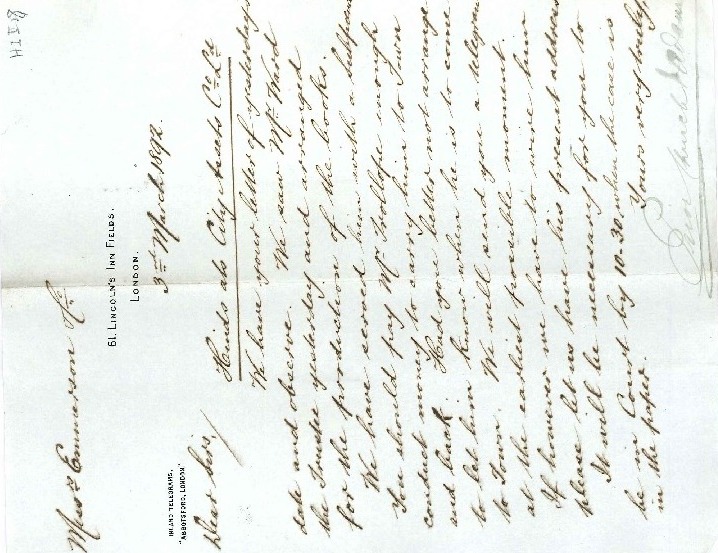 Messrs Emmerson &Co
61, LINCOLN'S INN FIELDS.
LONDON.
3rd March 1892.
INLAND TELEGRAMS,
"ABBOTSFORD, LONDON"
Dear Sirs,
Hinds a/s City Coy Ld
We have your letter of yesterdays
date and observe. We saw Mr Ward
the Trustee yesterday and arranged
for the production of the books.
We have served him with a subpoena
You should pay Mr Trollope enough
conduct money to carry him to Town
and back. Had you better not arrange
to let him know when he is to come
to Town. We will send you a telegram
at the earliest possible moment.
If however we have to wire him
please let us have his present address
It will be necessary for you to
be in Court by 10.30 when the case is
in the paper.
Yours very truly